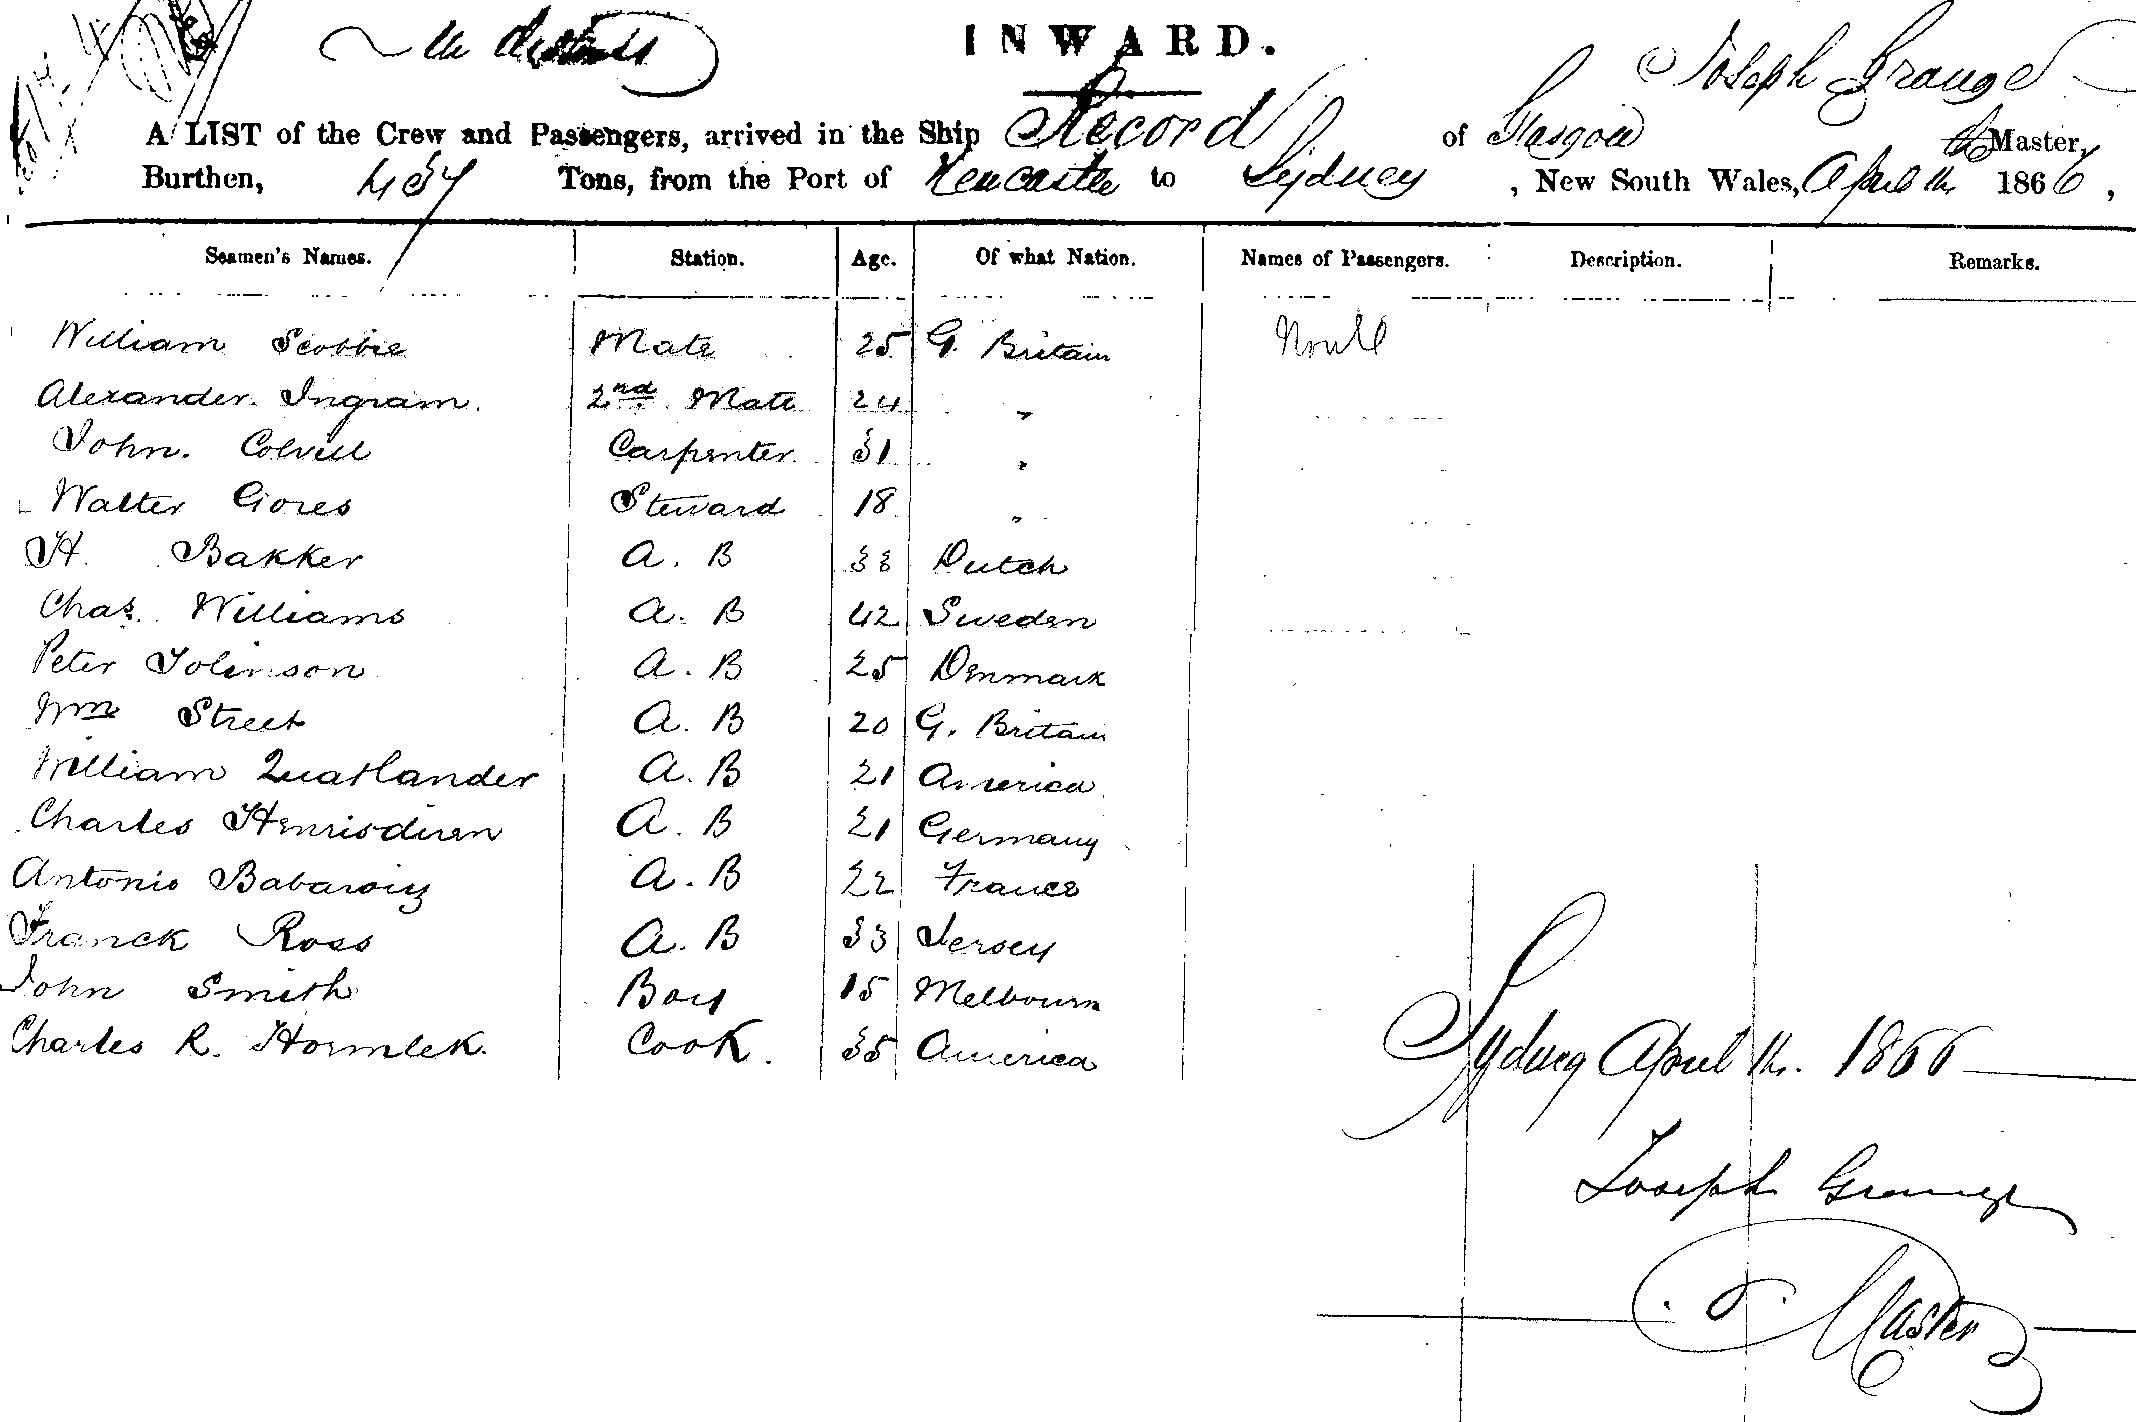 in distress
INWARD.
Joseph Grange
A LIST of the Crew and Passengers, arrived in the Ship Record of Glasgow Master,
Burthen, 457 Tons, from the Port of Newcastle to Sydney, New South Wales, April 1866,
Seamen's Names. Station. Age. Of what Nation. Names of Passengers. Description. Remarks.
William Scobbie Mate 25 G. Britain
Alexander Ingram. 2nd Mate 24 "
John. Colvill Carpenter 31 "
Walter Gores Steward 18 "
H. Bakker A. B 33 Dutch
Chas. Williams A. B 42 Sweden
Peter Johnson A. B 25 Denmark
Wm Street A. B 20 G. Britain
William Quatlander A. B 21 America
Charles A. B 21 Germany
Antonio A. B 22 France
Franck Ross A. B 33 Jersey
John Smith Boy 15 Melbourn
Charles R. Hormlek. Cook. 35 America
Sydney April 1866
Joseph Grange
Master